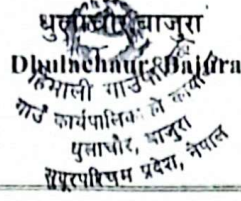 धुलाचौर बाजुरा
Dhulachaur, Bajura
हिमाली गाउँपालिका
गाउँ कार्यपालिकाको कार्यालय
धुलाचौर, बाजुरा
सुदूरपश्चिम प्रदेश, नेपाल